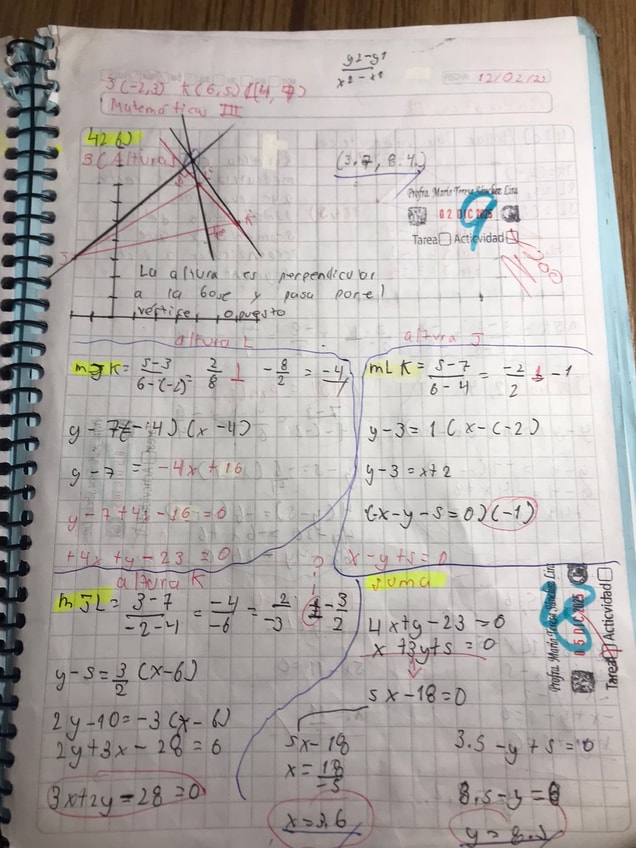 y2-y1
x2-x1
J(-2,3) K(6,5) L(4,7)
FECHA 12/02/2
Matemáticas III
426)
3(Altura)
(3.7, 8.4)
Profra. María Teresa Sánchez Lira
02 DIC 2025
9
Tarea Actividad
La altura es perpendicular
a la base y pasa por el
vertise opuesto
altura L
altura J
mJK = 5-3 / 6-(-2) = 2/8 ⊥ -8/2 = -4/1
mLK = 5-7 / 6-4 = -2/2 ⊥ -1
y-7=(-4)(x-4)
y-3=1(x-(-2)
y-7 = -4x+16
y-3=x+2
y-7+4x-16=0
(-x-y-5=0)(-1)
+4x+y-23=0
x-y+5=0
altura K
?
suma
mJL = 3-7 / -2-4 = -4/-6 = 2/-3 ⊥ -3/2
4x+y-23=0
x+3y+5=0
Profra. María Teresa Sánchez Lira
05 DIC 2025
8
Tarea Actividad
y-5=3/2 (x-6)
5x-18=0
2y-10=-3(x-6)
2y+3x-28=0
5x-18
x=18/-5
3.5-y+5=0
3x+2y-28=0
8.5-y=0
x=3.6